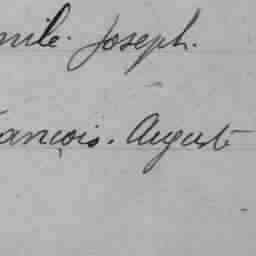 mile. Joseph.
ançois. Auguste